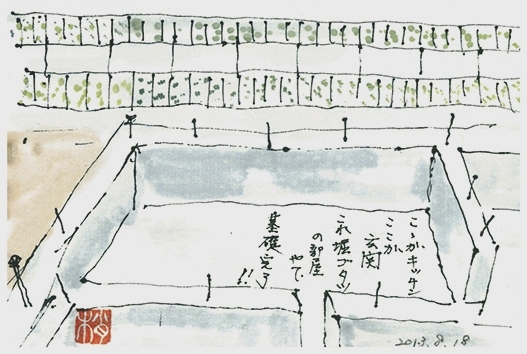 ここがキッチン
ここが
玄関
これ堀ゴタツ
の部屋
やで
基礎完了
!!
2013.8.18